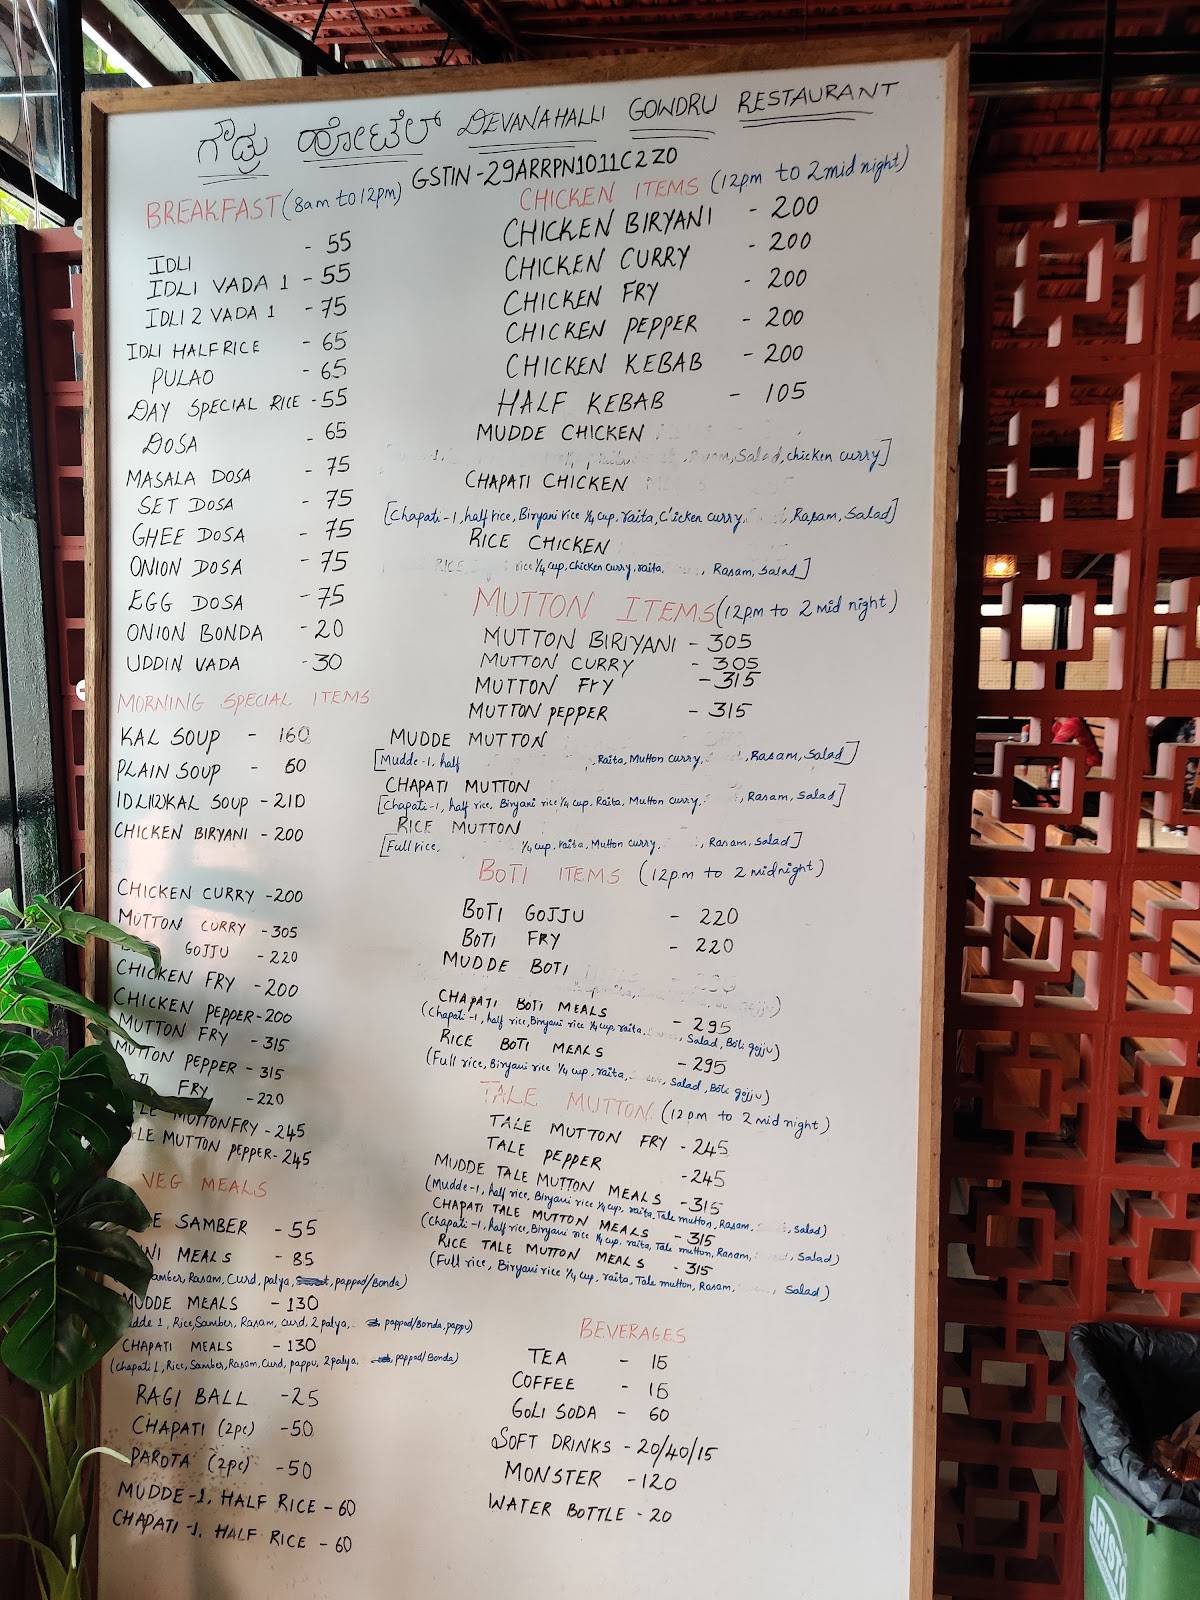 ಗೌಡ್ರು ಹೋಟೆಲ್ DEVANAHALLI GOWDRU RESTAURANT
GSTIN-29ARRPN1011C2Z0
BREAKFAST (8am to 12pm)
IDLI - 55
IDLI VADA 1 - 55
IDLI 2 VADA 1 - 75
IDLI HALF RICE - 65
PULAO - 65
DAY SPECIAL RICE - 55
DOSA - 65
MASALA DOSA - 75
SET DOSA - 75
GHEE DOSA - 75
ONION DOSA - 75
EGG DOSA - 75
ONION BONDA - 20
UDDIN VADA - 30
MORNING SPECIAL ITEMS
KAL SOUP - 160
PLAIN SOUP - 60
KAL SOUP - 210
CHICKEN BIRYANI - 200
CHICKEN CURRY - 200
MUTTON CURRY - 305
GOJJU - 220
CHICKEN FRY - 200
CHICKEN PEPPER - 200
MUTTON FRY - 315
MUTTON PEPPER - 315
FRY - 220
MUTTON FRY - 245
MUTTON PEPPER - 245
VEG MEALS
SAMBER - 55
MEALS - 85
Rasam, Curd, palya, pappad/Bonda)
MUDDE MEALS - 130
1, Rice, Samber, Rasam, Curd, 2 palya, pappad/Bonda, pappu)
CHAPATI MEALS - 130
(Chapati 1, Rice, Samber, Rasam, Curd, pappu, 2 palya, pappad/Bonda)
RAGI BALL - 25
CHAPATI (2pc) - 50
PAROTA (2pc) - 50
MUDDE-1. HALF RICE - 60
CHAPATI-1. HALF RICE - 60
CHICKEN ITEMS (12pm to 2 mid night)
CHICKEN BIRYANI - 200
CHICKEN CURRY - 200
CHICKEN FRY - 200
CHICKEN PEPPER - 200
CHICKEN KEBAB - 200
HALF KEBAB - 105
MUDDE CHICKEN
Salad, chicken curry]
CHAPATI CHICKEN
[Chapati-1, half rice, Biryani rice 1/4 cup, raita, C'icken curry, Rasam, Salad]
RICE CHICKEN
rice 1/4 cup, Chicken curry, raita, Rasam, Salad]
MUTTON ITEMS (12p.m to 2 mid night)
MUTTON BIRIYANI - 305
MUTTON CURRY - 305
MUTTON FRY - 315
MUTTON PEPPER - 315
MUDDE MUTTON
[Mudde-1, half , Raita, Mutton curry, , Rasam, Salad]
CHAPATI MUTTON
[Chapati-1, half rice, Biryani rice 1/4 cup, Raita, Mutton curry, , Rasam, Salad]
RICE MUTTON
[Full rice, 1/4 cup, raita, Mutton curry, , Rasam, Salad]
BOTI ITEMS (12p.m to 2 midnight)
BOTI GOJJU - 220
BOTI FRY - 220
MUDDE BOTI
CHAPATI BOTI MEALS - 295
(Chapati-1, half rice, Biryani rice 1/4 cup, raita, Salad, Boti gojju)
RICE BOTI MEALS - 295
(Full rice, Biryani rice 1/4 cup, raita, Salad, Boti gojju)
TALE MUTTON (12p.m to 2 mid night)
TALE MUTTON FRY - 245
TALE PEPPER - 245
MUDDE TALE MUTTON MEALS - 315
(Mudde-1, half rice, Biryani rice 1/4 cup, raita, Tale mutton, Rasam, Salad)
CHAPATI TALE MUTTON MEALS - 315
(Chapati-1, half rice, Biryani rice 1/4 cup, raita, Tale mutton, Rasam, Salad)
RICE TALE MUTTON MEALS - 315
(Full rice, Biryani rice 1/4 cup, raita, Tale mutton, Rasam, Salad)
BEVERAGES
TEA - 15
COFFEE - 15
GOLI SODA - 60
SOFT DRINKS - 20/40/15
MONSTER - 120
WATER BOTTLE - 20
ARISTO